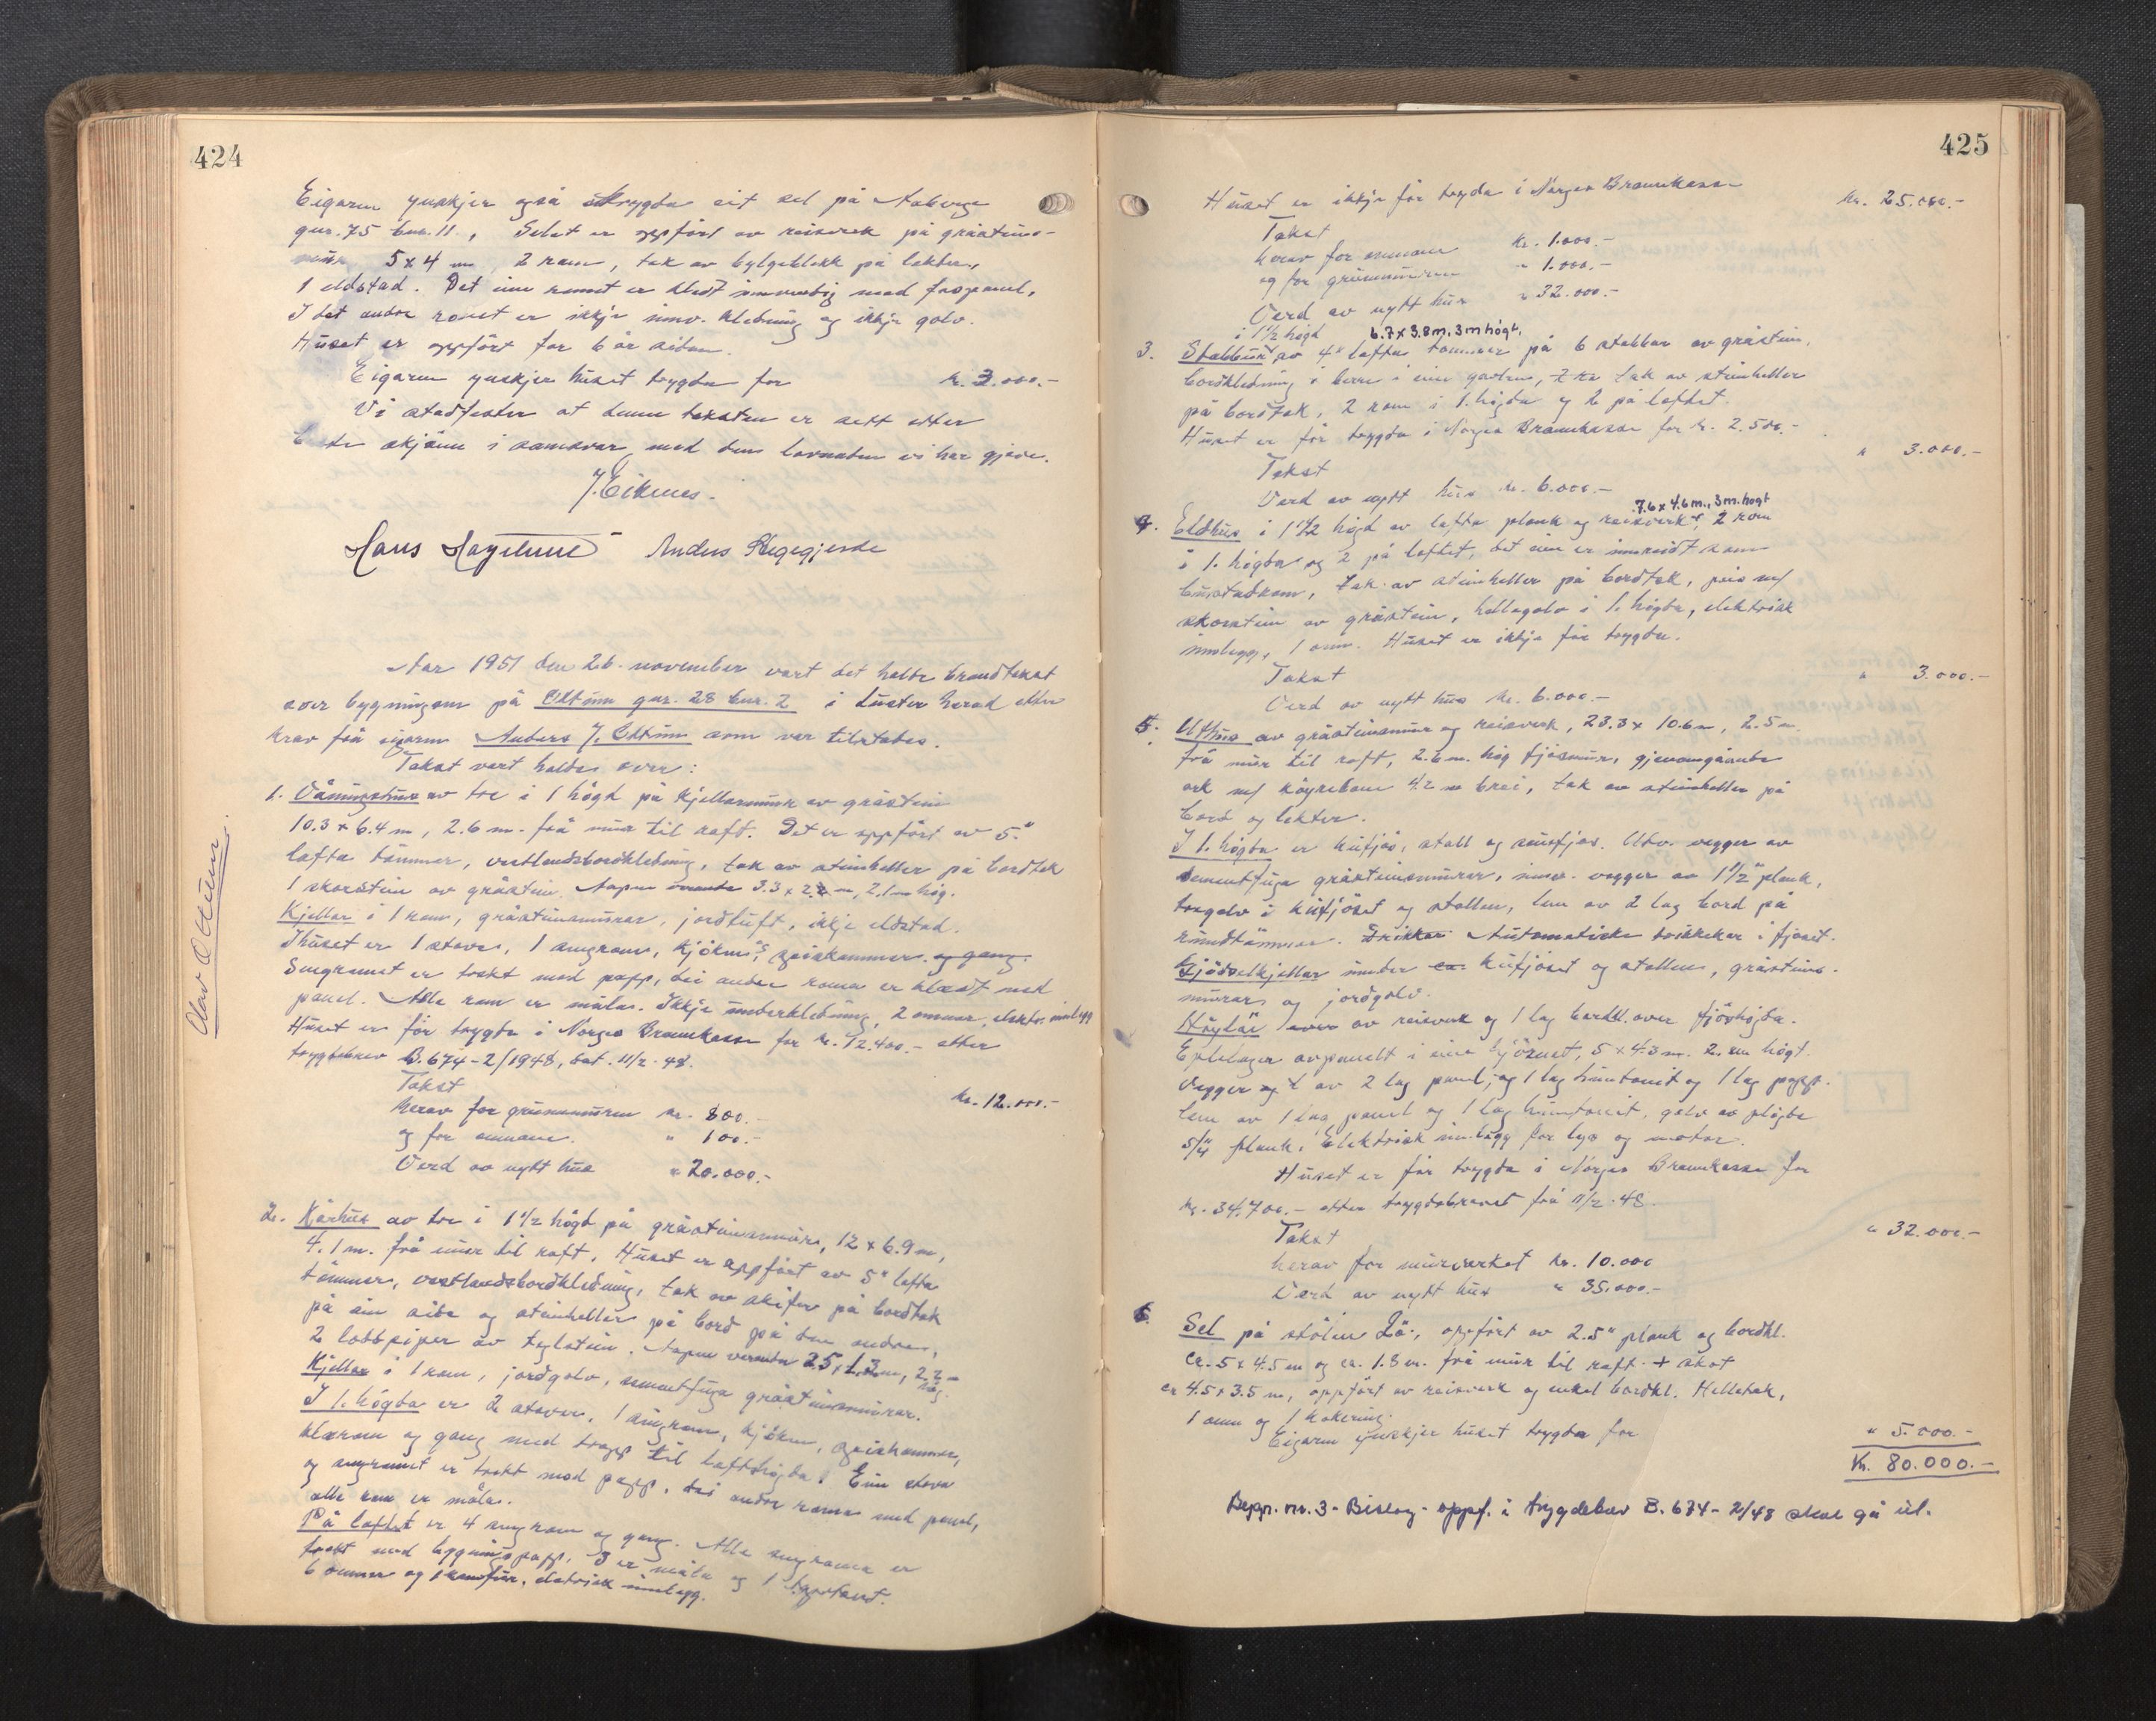 424
Eigaren ynskjer også trygda eit sel på Aaberge
gnr. 75 bnr. 11., Selet er oppført av reisverk på gråsteins-
mur 5 x 4 m, 2 rom, tak av bylgeblekk på lekter,
1 eldstad. Det eine romet er kledt innvendig med faspanel,
I det andre romet er ikkje innv. kledning og ikkje golv.
Huset er oppført for 6 år sidan.
Eigaren ynskjer huset trygda for kr. 3.000.-
Vi stadfester at denne taksten er sett etter
beste skjønn i samsvar med den lovnaden vi har gjeve.
J. Eikenes.
Hans Høyelune Anders Skgegjerde
Olav Ottum.
Aar 1951 den 26. november vart det halde brandtakst
over bygningane på Ottum gnr. 28 bnr. 2 i Luster herad etter
krav frå eigaren Anders J. Ottum som var tilstades.
Takst vart halden over:
1. Våningshus av tre i 1 høgd på kjellarmur av gråstein
10.3 x 6.4 m, 2.6 m. frå mur til raft. Det er oppført av 5."
lafta tømmer, vestlandsbordkledning, tak av steinheller på bordtak
1 skorstein av gråstein. Aapen veranda 3.3 x 2.2 m, 2.1 m høg.
Kjellar i 1 rom, gråsteinsmurar, jordluft, ikkje eldstad.
I huset er 1 stove, 1 sengrom, kjøken, speiskammer og gang.
Sengromet er trekt med papp, dei andre roma er kledt med
panel. Alle rom er måla. Ikkje underkledning, 2 omnar, elektr. innl. 49
Huset er før trygda i Norges Brannkasse for kr. 12.400.- etter
trygdebrev B. 674-2/1948, dat. 11/2-48.
Takst kr. 12.000.-
herav for grunnmuren kr. 800.-
og for omnane. " 100.-
Verd av nytt hus " 20.000.-
2. Kårhus av tre i 1 1/2 høgd på gråsteinsmur, 12 x 6.9 m,
4.1 m. frå mur til raft. Huset er oppført av 5" lafta
tømmer, vestlandsbordkledning, tak av skifer på bordtak
på ein side og steinheller på bord på den andre,
2 lobbpiper av teglstein. Aapen veranda 2.5 x 1.3 m, 2.2 m
høg.
Kjellar i 1 rom, jordgolv, sementfuga gråsteinsmurar.
I 1. høgda er 2 stover, 1 sengrom, kjøken, speiskammer,
klerom og gang med trapp til loftshøgda. Ein stova
og sengromet er trekt med papp, dei andre roma med panel,
alle rom er måla.
På loftet er 4 sengrom og gang. Alle sengroma er
trekt med bygningspapp, 3 er måla og 1 tapetsert.
6 omnar og 1 komfur, elektrisk innlegg.
425
Huset er ikkje før trygda i Norges Brannkasse
Takst kr. 25.000.-
herav for omnane kr. 1.000.-
og for grunnmuren " 1.000.-
Verd av nytt hus " 32.000.-
i 1 1/2 høgd 6.7 x 3.8 m, 3 m høgt.
3. Stabbur av 4" lafta tømmer på 6 stabbar av gråstein,
bordkledning i berre i eine gavlen, tak av steinheller
på bordtak, 2 rom i 1. høgda og 2 på loftet.
Huset er før trygda i Norges Brannkasse for kr. 2.500.-
Takst " 3.000.-
Verd av nytt hus kr. 6.000.-
7.6 x 4.6 m., 3 m. høgt
4. Eldhus i 1 1/2 høgd av lafta plank og reisverk, 2 rom
i 1. høgda og 2 på loftet, det eine er innreidt som
bustadrom, tak av steinheller på bordtak, peis m/
skorstein av gråstein, hellegolv i 1. høgda, elektrisk
innlegg, 1 omn. Huset er ikkje før trygda.
Takst " 3.000.-
Verd av nytt hus kr. 6.000.-
5. Uthus av gråsteinsmur og reisverk, 23.3 x 10.6 m, 2.5 m
frå mur til raft, 2.6 m. høg fjøsmur, gjenomgåande
ark m/ køyrebane 4.2 m brei, tak av steinheller på
bord og lekter.
I 1. høgda er kufjøs, stall og sauefjøs. Utv. vegger av
sementfuga gråsteinsmurar, innv. vegger av 1 1/2" plank,
tregolv i kufjøset og stallen, lem av 2 lag bord på
rundtømmer. Drikkar Automatiske drikkekar i fjøset.
Gjødselkjellar under kufjøset og stallen, gråsteins-
murar og jordgolv.
Høyløe over av reisverk og 1 lag bordkl. over fjøshøgda.
Eplelager avpanelt i eine hjørnet, 5 x 4.3 m. 2. m høgt.
Vegger av 2 lag panel, og 1 lag huntonit og 1 lag papp.
Lem av 1 lag panel og 1 lag huntonit, golv av pløgde
5/4" plank. Elektrisk innlegg for lys og motor.
Huset er før trygda i Norges Brannkasse for
kr. 34.700.- etter trygdebrevet frå 11/2-48.
Takst " 32.000.-
herav for murverket kr. 10.000
Verd av nytt hus " 35.000.-
6. Sel på stølen Lø., oppført av 2.5" plank og bordkl.
ca. 5 x 4.5 m og ca. 1.8 m. frå mur til raft. + skot
ca 4.5 x 3.5 m, oppført av reisverk og enkel bordkl. Helletak,
1 omn og 1 kokering.
Eigaren ynskjer huset trygda for " 5.000.-
Kr. 80.000.-
Bygn. nr. 3 - Bislag - oppf. i trygdebrev B. 674-2/48 skal gå ut.